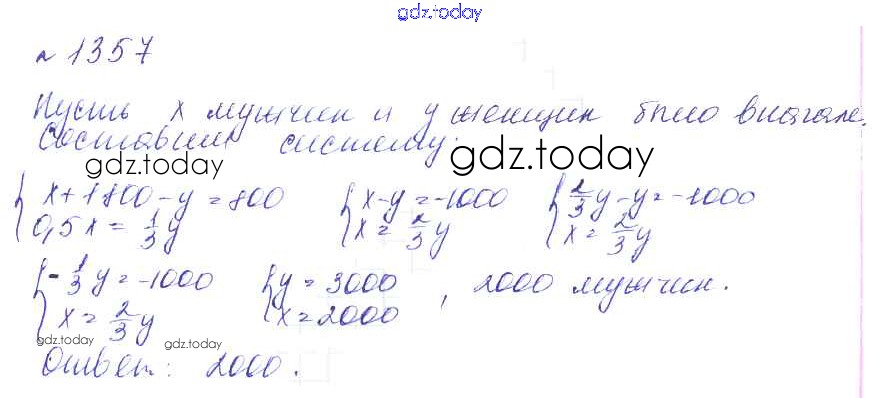 gdz.today
№ 1357
Пусть x мужчин и y женщин было вначале.
Составим систему:
gdz.today gdz.today
{x+1800-y=800 {x-y=-1000 {2/3y-y=-1000
0,5x=1/3y x=2/3y x=2/3y
{-1/3y=-1000 {y=3000 , 2000 мужчин.
x=2/3y x=2000
gdz.today gdz.today
Ответ: 2000.